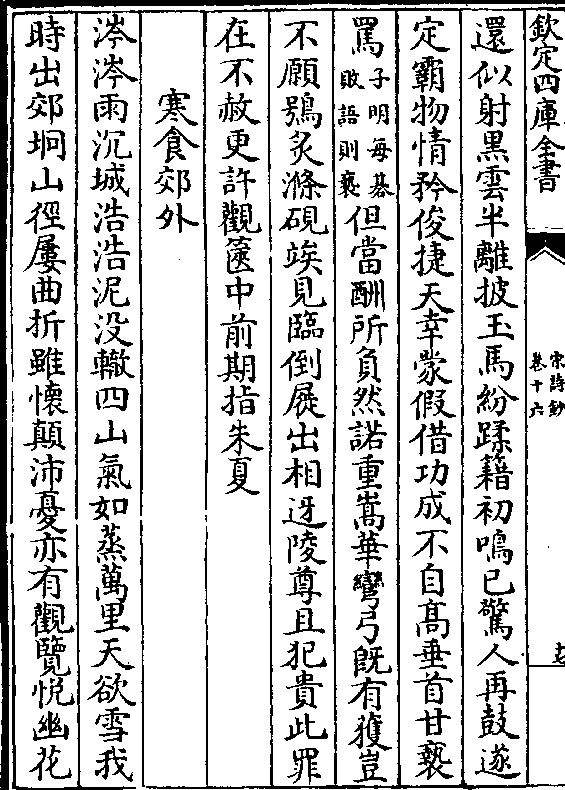 欽定四庫全書
宋詩鈔
卷十六
還似射黒雲半離披玉馬紛蹂籍初鳴已驚人再鼓遂
定霸物情矜俊捷天幸蒙假借功成不自髙垂首甘褻
罵子明每棊敗語則褻但當酬所負然諾重嵩華彎弓旣有獲豈
不願鴞炙滌硯竢見臨倒屣出相迓陵尊且犯貴此罪
在不赦更許觀篋中前期指朱夏
寒食郊外
涔涔雨沉城浩浩泥没轍四山氣如蒸萬里天欲雪我
時出郊坰山徑屢曲折雖懷顛沛憂亦有觀覽悦幽花